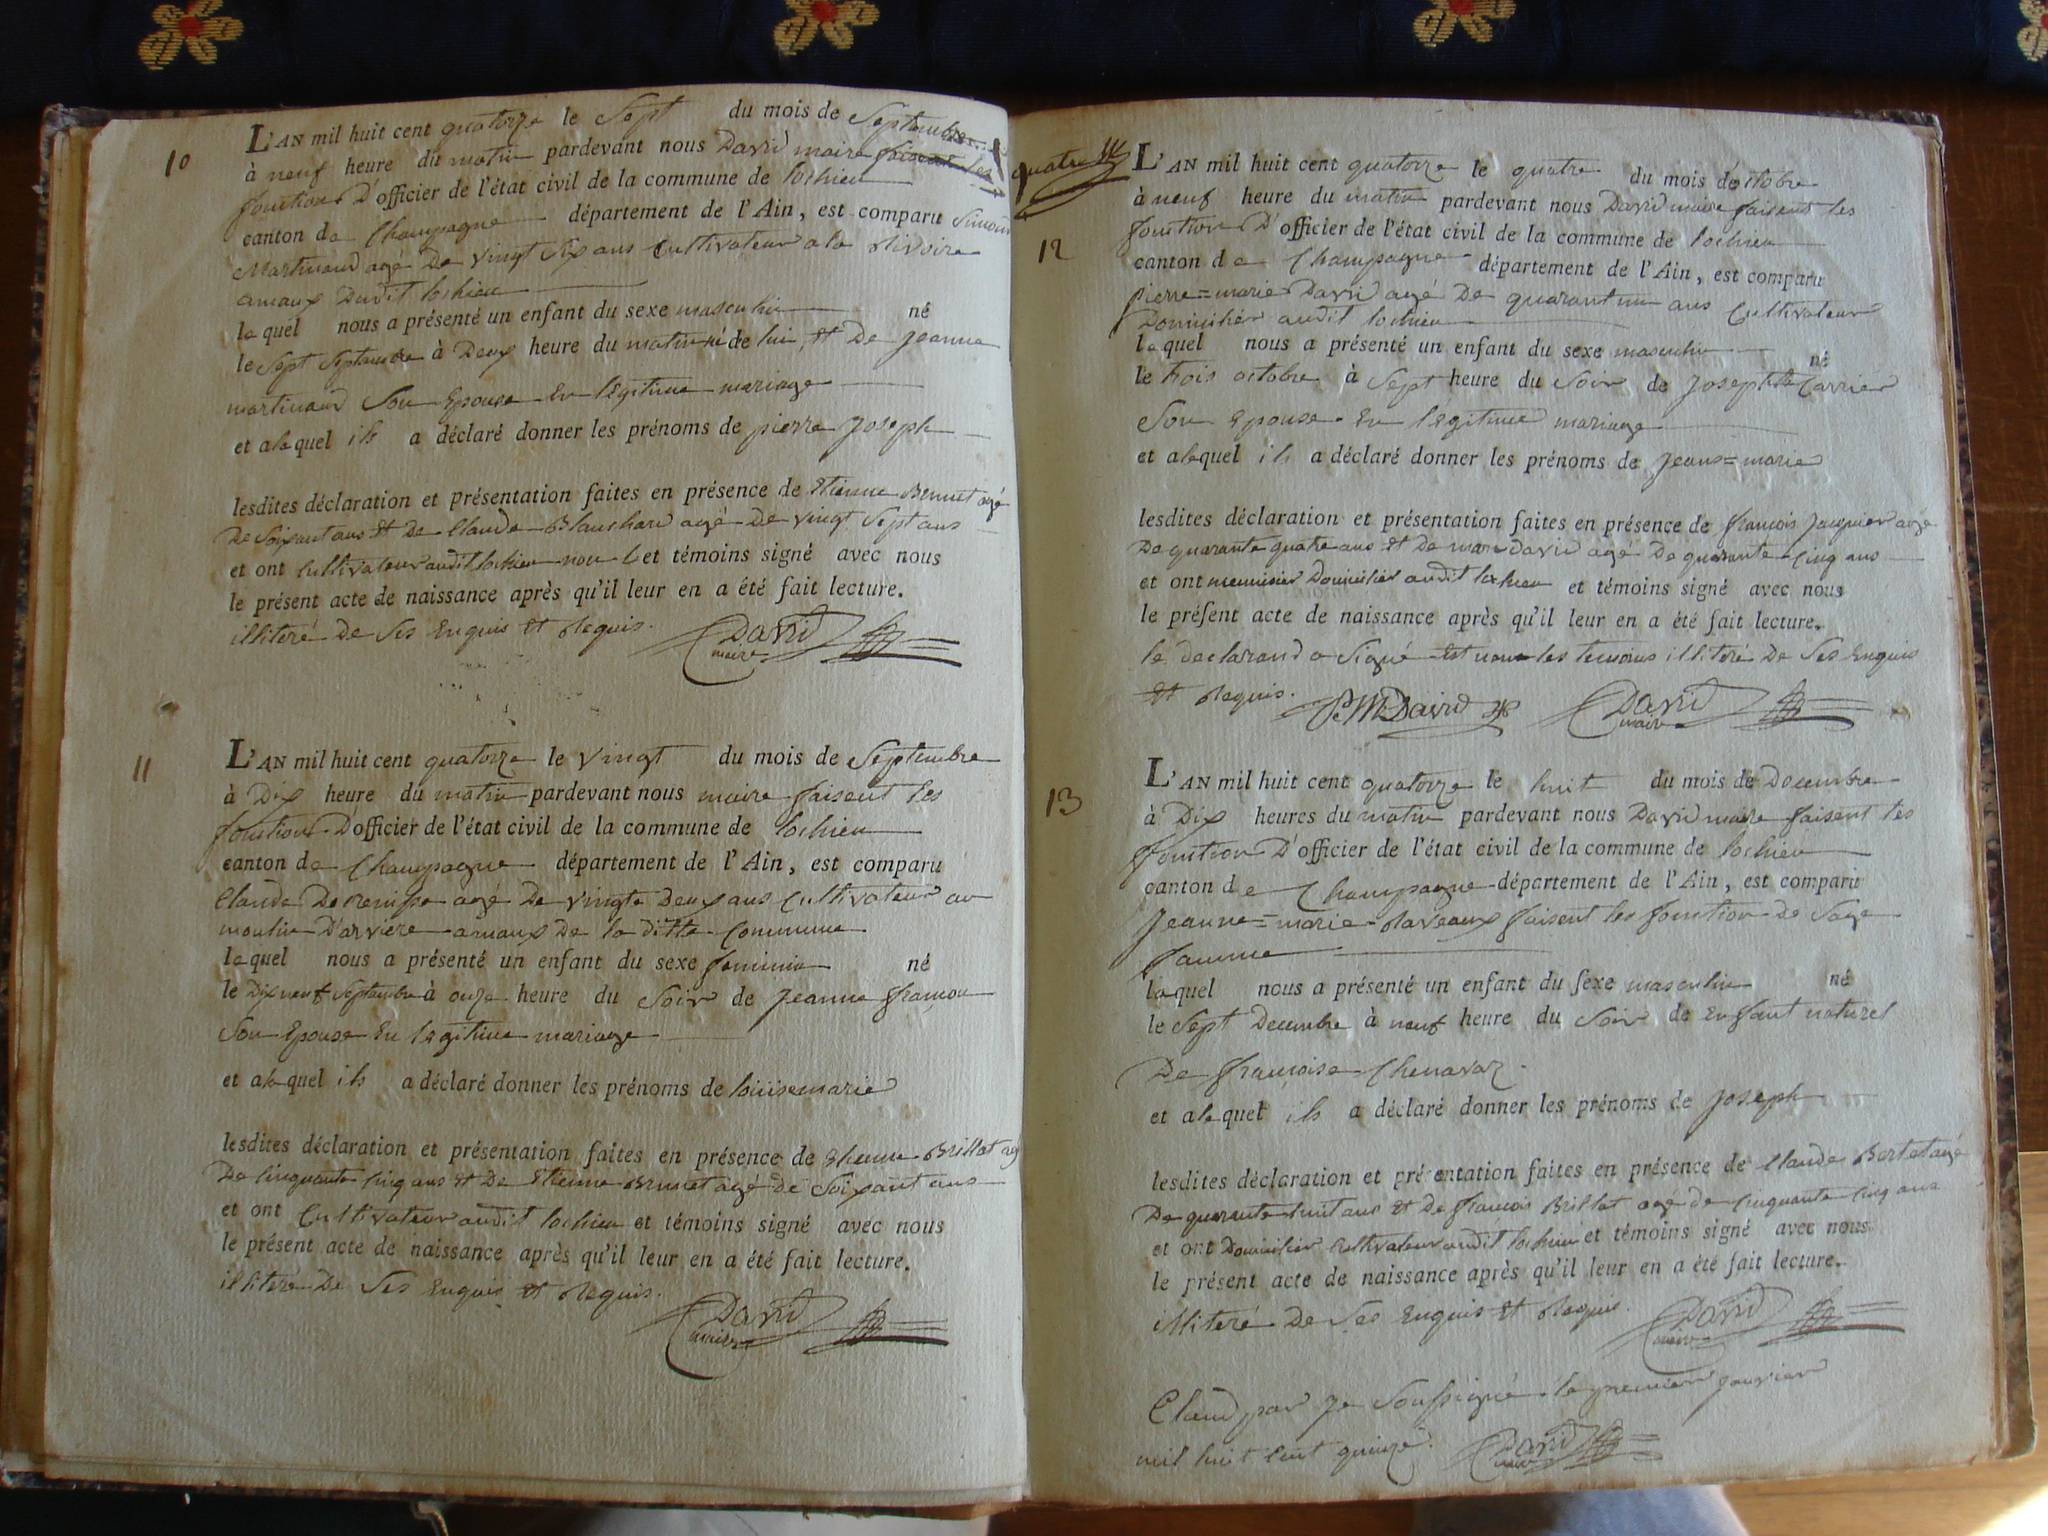 10
L'AN mil huit cent quatorze le Sept du mois de Septembre
à neuf heure du matin pardevant nous David maire faisent les
fonction D'officier de l'état civil de la commune de lochieu
canton de Champagne département de l'Ain, est comparu Simon
Martinand agé De vingt Six ans Cultivateur a la
audit lochieu
lequel nous a présenté un enfant du sexe masculin né
le Sept Septembre à Deux heure du matin né de lui et De Jeanne
martinand Son Epouse En légitime mariage
et alequel ils a déclaré donner les prénoms de pierre Joseph
lesdites déclaration et présentation faites en présence de Etienne Brunet agé
De Soixant ans et De Claude Blanchard agé De vingt Sept ans
et ont Cultivateur audit lochieu non et témoins signé avec nous
le présent acte de naissance après qu'il leur en a été fait lecture.
illiteré De Ses Enquis et Requis.
David
maire
11
L'AN mil huit cent quatorze le vingt du mois de Septembre
à Dix heure du matin pardevant nous maire faisent les
fonction D'officier de l'état civil de la commune de lochieu
canton de Champagne département de l'Ain, est comparu
Claude agé De vingte Deux ans Cultivateur au
moulin D'arviere De la ditte Commune
lequel nous a présenté un enfant du sexe feminin né
le Dix neuf Septembre à onze heure du Soir de Jeanne
Son Epouse En legitime mariage
et alequel ils a déclaré donner les prénoms de louise marie
lesdites déclaration et présentation faites en présence de Etienne Brillat agé
De Cinquante Cinq ans et De Etienne Brunet agé De Soixant ans
et ont Cultivateur audit lochieu et témoins signé avec nous
le présent acte de naissance après qu'il leur en a été fait lecture.
illiteré De Ses Enquis et Requis.
David
maire
quatre
12
L'AN mil huit cent quatorze le quatre du mois d'octobre
à neuf heure du matin pardevant nous David maire faisent les
fonction D'officier de l'état civil de la commune de lochieu
canton de Champagne département de l'Ain, est comparu
pierre=marie David agé De quarant un ans Cultivateur
Domicilier audit lochieu
lequel nous a présenté un enfant du sexe masculin né
le trois octobre à Sept heure du Soir de Josephte Carrier
Son Epouse En légitime mariage
et alequel ils a déclaré donner les prénoms de Jeans=marie
lesdites déclaration et présentation faites en présence de francois Jacquier agé
De quarante quatre ans et De marc David agé De quarante Cinq ans
et ont menuisier Domicilier audit lochieu et témoins signé avec nous
le présent acte de naissance après qu'il leur en a été fait lecture.
le declarand a Signé Et non les temoins illiteré De Ses Enquis
Et Requis. PM David David
maire
13
L'AN mil huit cent quatorze le huit du mois de Decembre
à Dix heures du matin pardevant nous David maire faisent les
fonction D'officier de l'état civil de la commune de lochieu
canton de Champagne département de l'Ain, est comparu
Jeanne=marie Raveaux faisent les fonction De Sage
famme
laquel nous a présenté un enfant du sexe masculin né
le Sept Decembre à neuf heure du Soir de Enfant naturel
De francoise Chenavaz.
et alequel ils a déclaré donner les prénoms de Joseph
lesdites déclaration et présentation faites en présence de Claude Bertet agé
De quarante huit ans et De francois Brillat agé de Cinquante Cinq ans
et ont Domicilier Cultivateur audit lochieu et témoins signé avec nous
le présent acte de naissance après qu'il leur en a été fait lecture.
illiteré De Ses Enquis Et Requis. David
maire
par Je Soussigné le premier Janvier
mil huit Cent quinze. David
maire